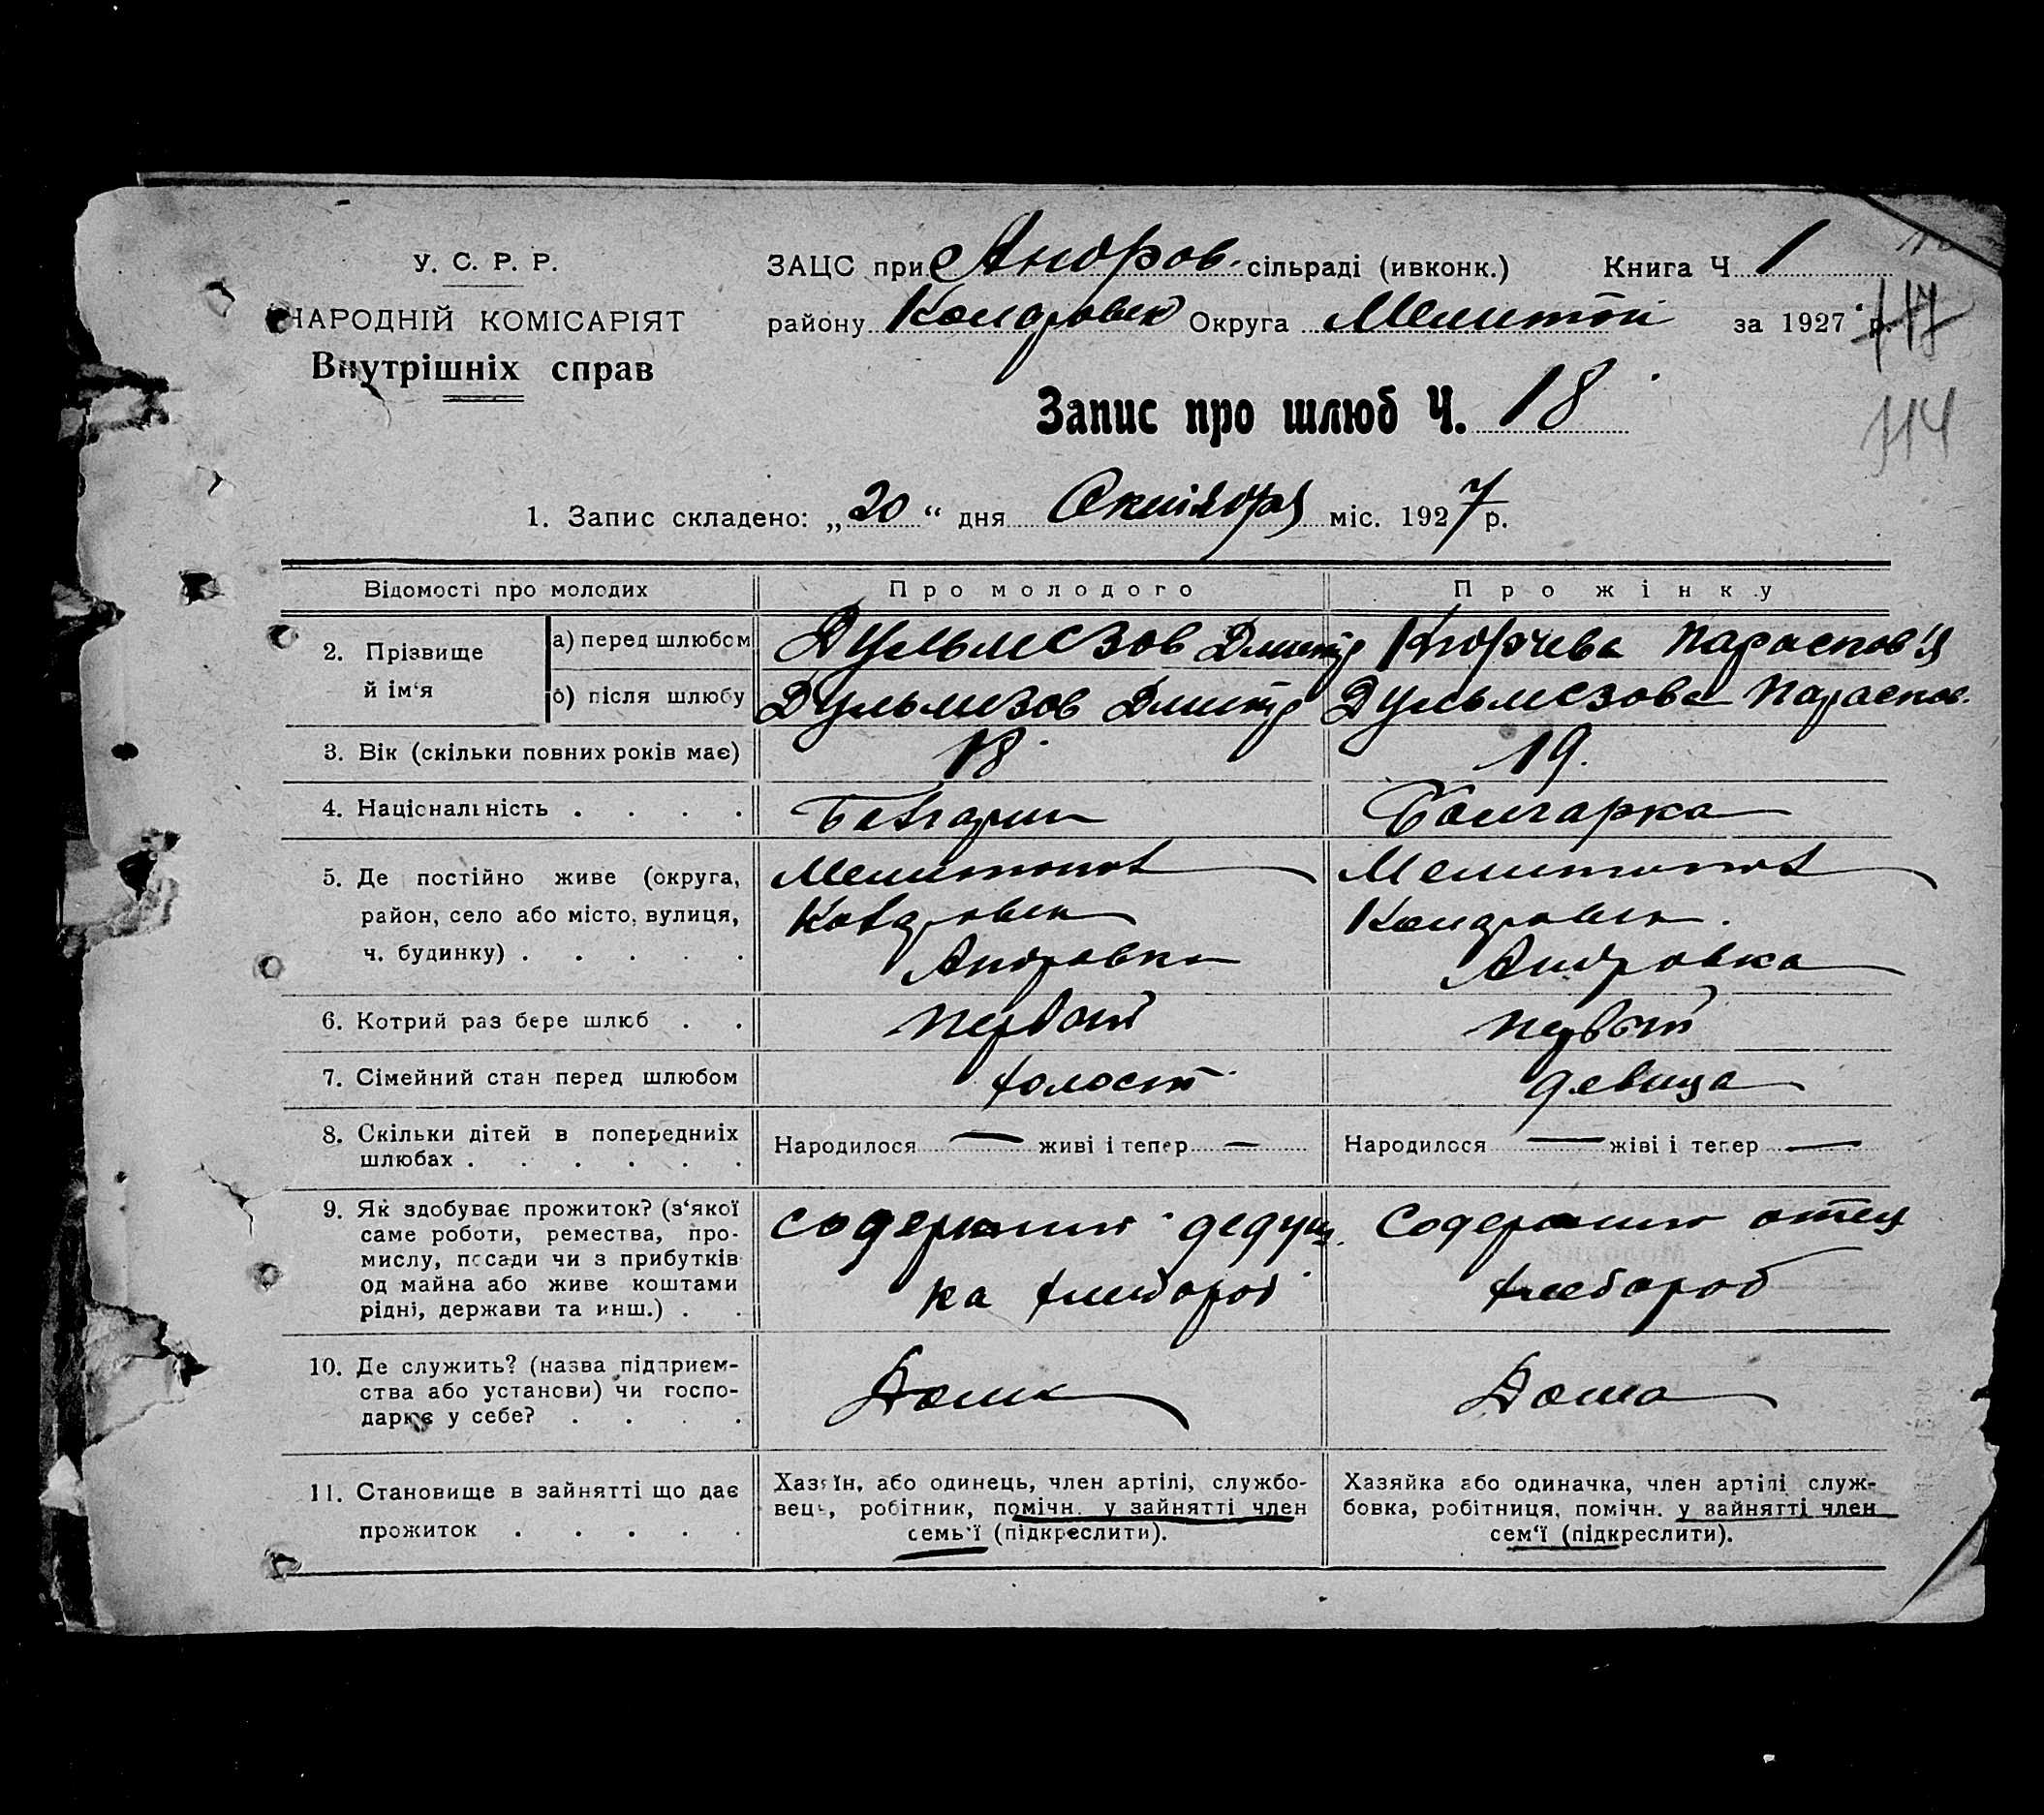 У. С. Р. Р.
НАРОДНІЙ КОМІСАРІЯТ
Внутрішніх справ
ЗАЦС при Андров. сільраді (ивконк.) Книга Ч 1
району Коларовск Округа Мелитоп за 1927 р. 117
Запис про шлюб Ч. 18
114
1. Запис складено: „20“ дня Октября міс. 1927 р.
Відомості про молодих Про молодого Про жінку
2. Прізвище й ім‘я
а) перед шлюбом Дульмезов Дмитр Кюрчева Парасков'я
б) після шлюбу Дульмезов Дмитр Дульмезова Парасков.
3. Вік (скільки повних років має) 18 19.
4. Національність . . . . Болгарин Болгарка
5. Де постійно живе (округа, Мелитопол Мелитопол
район, село або місто, вулиця, Коларовск Коларовск.
ч. будинку) . . . . . Андровка Андровка
6. Котрий раз бере шлюб . . первый первый
7. Сімейний стан перед шлюбом холост девица
8. Скільки дітей в попередниіх Народилося — живі і тепер — Народилося — жіві і тепер —
шлюбах . . . . . .
9. Як здобуває прожиток? (з‘якої содержит дедуш Содержит отец
саме роботи, ремества, про-
мислу, посади чи з прибутків
од майна або живе коштами ка хлебороб хлебороб
рідні, держави та инш.) . .
10. Де служить? (назва підприєм-
ства або установи) чи госпо- Дома Дома
дарює у себе? . . . .
11. Становище в зайнятті що дає Хазяїн, або одинець, член артілі, службо- Хазяйка або одиначка, член артілі служ-
прожиток . . . . . вець, робітник, помічн. у зайнятті член бовка, робітниця, помічн. у зайнятті член
семь‘ї (підкреслити). сем‘ї (підкреслити).